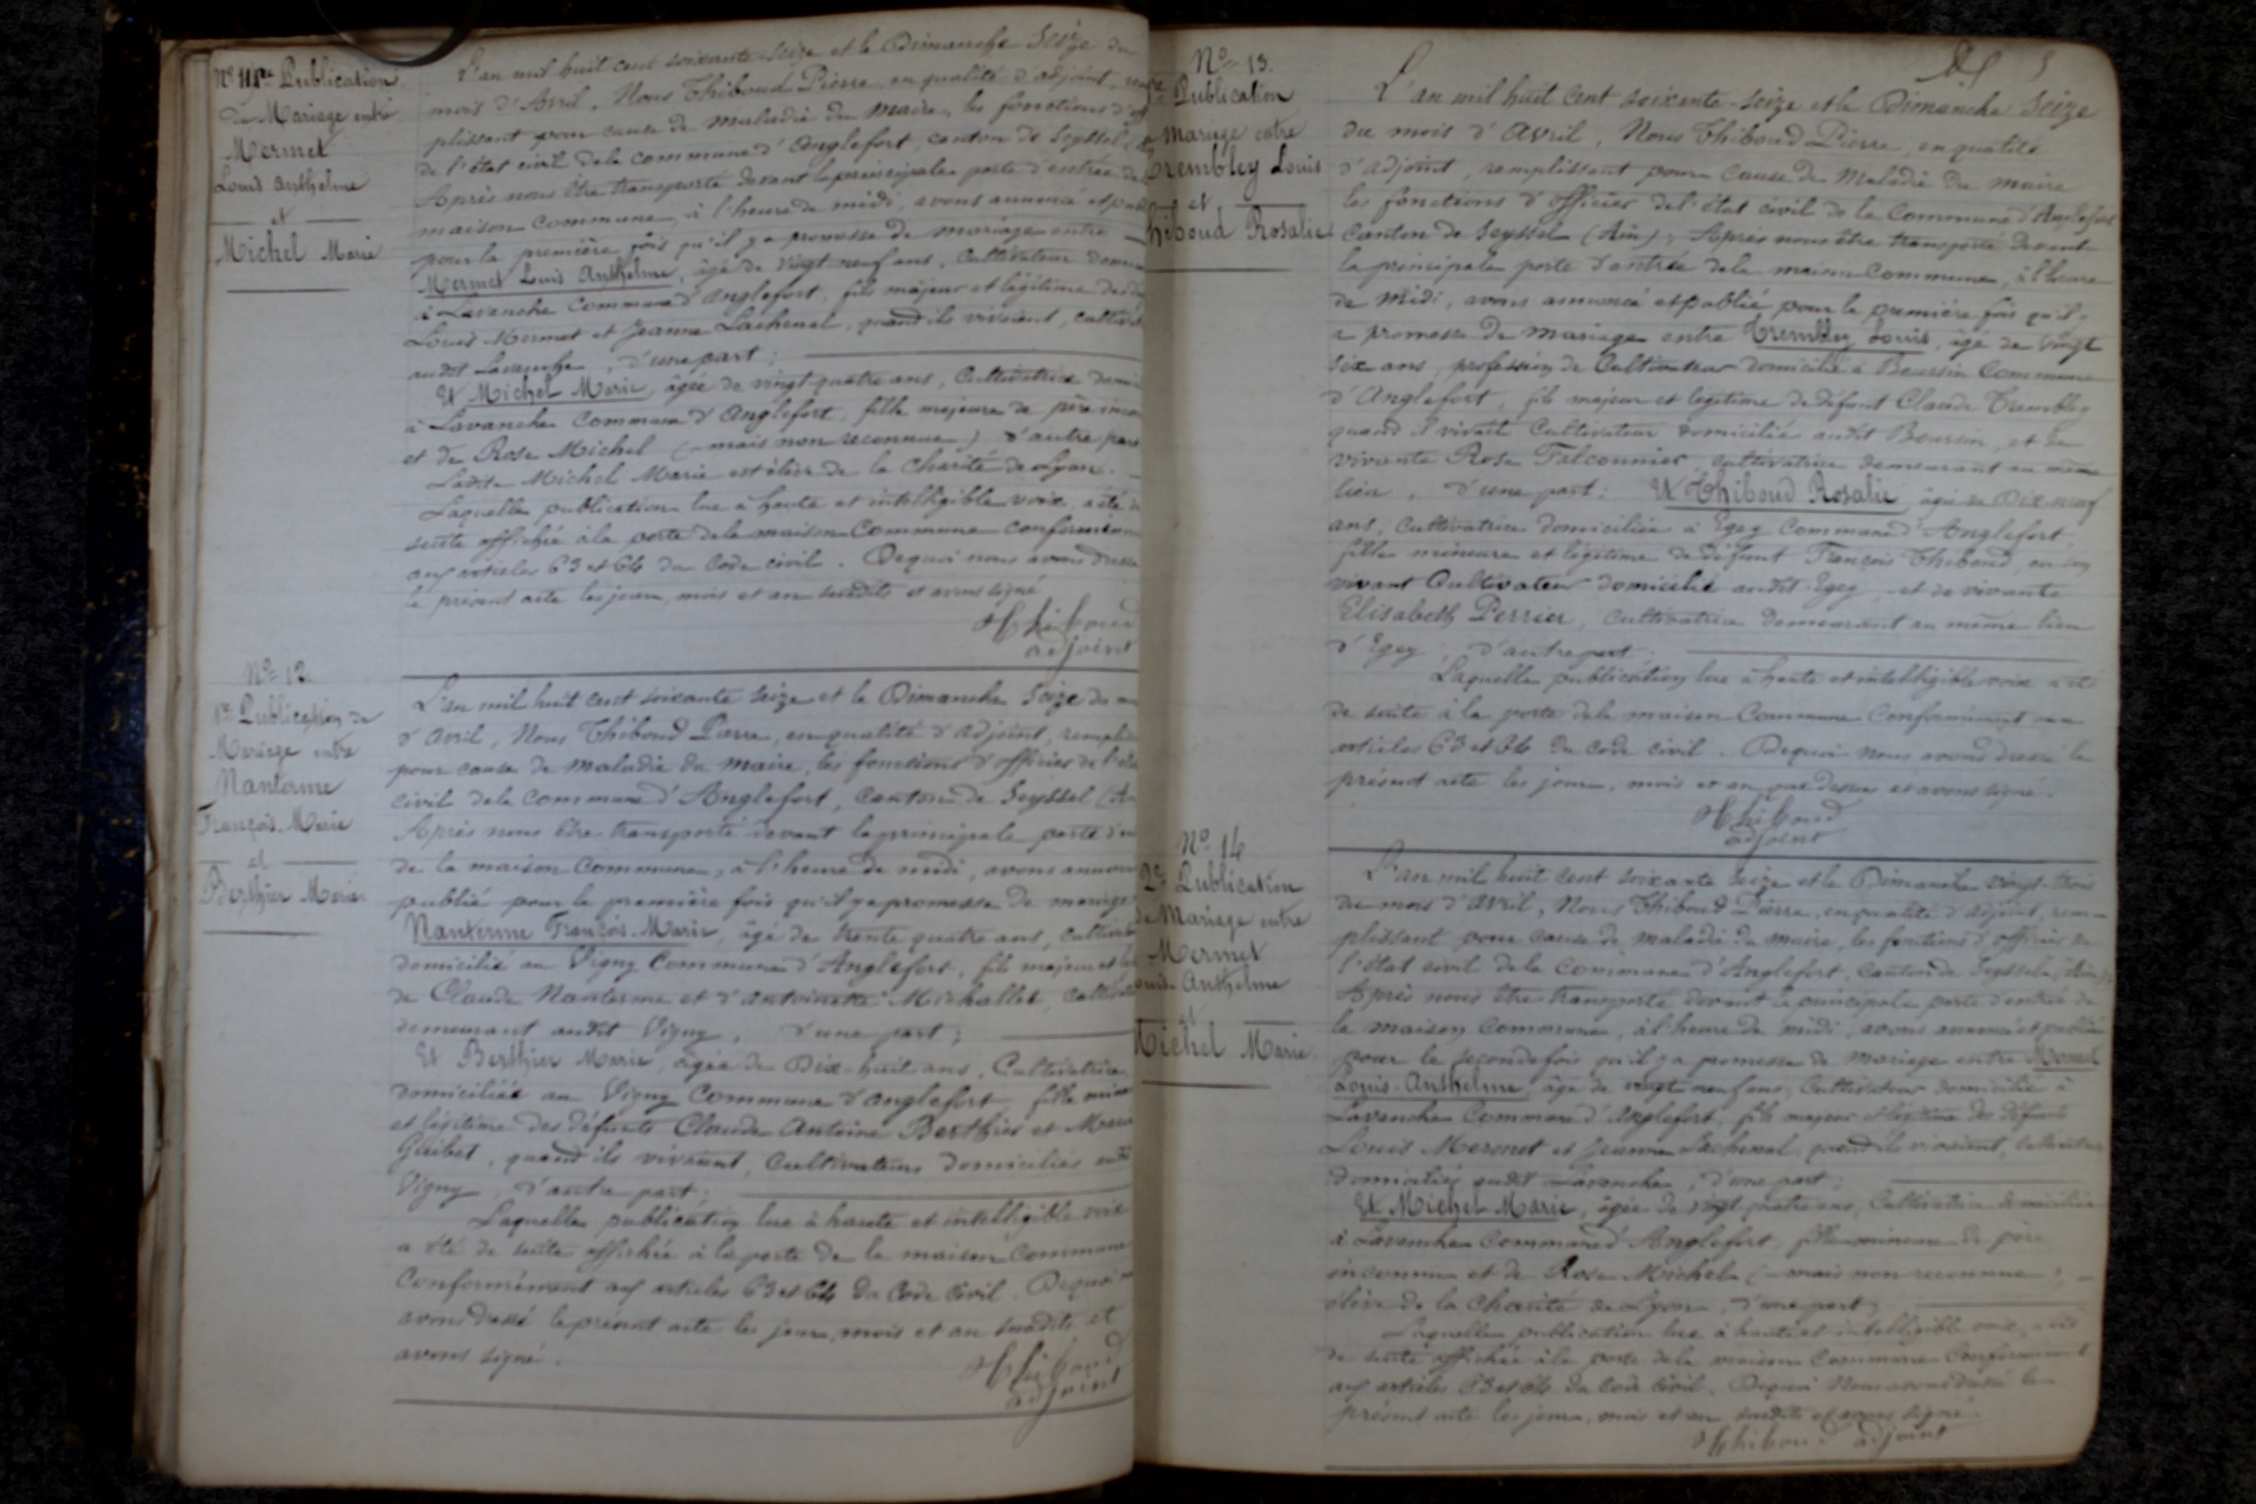 Nº 11 1re Publication
de Mariage entre
Mermet
Louis Anthelme
et
Michel Marie
L'an mil huit cent soixante-seize et le Dimanche Seize du
mois d'Avril, Nous Thiboud Pierre, en qualité d'adjoint, rem
plissant pour cause de maladie du Maire, les fonctions d'off
de l'état civil de la commune d'Anglefort, canton de Seyssel
Après nous être transporté devant la principale porte d'entrée de
maison commune, à l'heure de midi, avons annoncé et pub
pour la première fois qu'il y a promesse de mariage entre
Mermet Louis Anthelme, âgé de vingt neuf ans, Cultivateur
à Lavanche Commune d'Anglefort, fils majeur et légitime des
Louis Mermet et Jeanne Lachenal, quand ils vivaient, cultiv
audit Lavanche, d'une part;
Et Michel Marie, âgée de vingt-quatre ans, Cultivatrice
à Lavanche Commune d'Anglefort, fille majeure de père
et de Rose Michel (mais non reconnue) d'autre part
Ladite Michel Marie est élève de la Charité de Lyon.
Laquelle publication lue à haute et intelligible voix, a été de
suite affichée à la porte de la maison Commune conformém
aux articles 63 et 64 du Code civil. De quoi nous avons dressé
le présent acte les jour, mois et an susdits et avons signé
Thiboud
adjoint
Nº 12.
1re Publication de
Mariage entre
Nanterme
François-Marie
et
Berthier Marie
L'an mil huit cent soixante seize et le Dimanche Seize du
d'Avril, Nous Thiboud Pierre, en qualité d'adjoint, rempli
pour cause de maladie du maire, les fonctions d'officier de l'éta
civil de la commune d'Anglefort, Canton de Seyssel (A
Après nous être transporté devant la principale porte d'en
de la maison commune, à l'heure de midi, avons annon
publié pour la première fois qu'il y a promesse de mariage
Nanterme François-Marie, âgé de trente quatre ans, cultiv
domicilié au Vigny Commune d'Anglefort, fils majeur et
de Claude Nanterme et d'Antoinette Michallet, cultiv
demeurant audit Vigny, d'une part;
Et Berthier Marie, âgée de Dix-huit ans, Cultivatrice
domiciliée au Vigny Commune d'Anglefort, fille min
et légitime des défunts Claude Antoine Berthier et
Guibet, quand ils vivaient, Cultivateurs domiciliés
Vigny, d'autre part;
Laquelle publication lue à haute et intelligible voix
a été de suite affichée à la porte de la maison commune
Conformément aux articles 63 et 64 du Code Civil. De quoi
avons dressé le présent acte les jour, mois et an susdits et
avons signé.
Thiboud
adjoint
Nº 13.
Publication
Mariage entre
Trembley Louis
et
Thiboud Rosalie
5
L'an mil huit cent soixante-seize et le Dimanche Seize
du mois d'Avril, Nous Thiboud Pierre, en qualité
d'adjoint, remplissant pour cause de Maladie du maire
les fonctions d'officier de l'état civil de la Commune d'Anglefort
Canton de Seyssel (Ain); Après nous être transporté devant
la principale porte d'entrée de la maison Commune, à l'heure
de midi, avons annoncé et publié pour la première fois qu'il y
a promesse de mariage entre Trembley Louis, âgé de vingt
six ans, profession de Cultivateur domicilié à Commune
d'Anglefort, fils majeur et légitime de défunt Claude Trembley
quand il vivait Cultivateur domicilié audit et de
vivante Rose Falconnier, cultivatrice demeurant au même
lieu, d'une part; Et Thiboud Rosalie, âgée de Dix-neuf
ans, Cultivatrice domiciliée à Egey Commune d'Anglefort
fille mineure et légitime de défunt François Thiboud, en son
vivant Cultivateur domicilié audit Egey, et de vivante
Elisabeth Perrier, Cultivatrice demeurant au même lieu
d'Egey, d'autre part.
Laquelle publication lue à haute et intelligible voix a été
de suite à la porte de la maison Commune Conformément aux
articles 63 et 64 du Code civil. De quoi nous avons dressé le
présent acte les jour, mois et an que dessus et avons signé.
Thiboud
adjoint
Nº 14
2e Publication
de Mariage entre
Mermet
Louis-Anthelme
et
Michel Marie
L'an mil huit cent soixante seize et le Dimanche vingt-trois
du mois d'Avril, Nous Thiboud Pierre, en qualité d'adjoint, rem
plissant pour cause de maladie du maire, les fonctions d'officier de
l'état civil de la commune d'Anglefort, Canton de Seyssel (Ain);
Après nous être transporté devant la principale porte d'entrée de
la maison commune, à l'heure de midi, avons annoncé et publié
pour la seconde fois qu'il y a promesse de mariage entre Mermet
Louis-Anthelme, âgé de vingt neuf ans, Cultivateur domicilié à
Lavanche Commune d'Anglefort, fils majeur et légitime des défunts
Louis Mermet et Jeanne Lachenal, quand ils vivaient, cultivateurs
domiciliés audit Lavanche, d'une part;
Et Michel Marie, âgée de vingt-quatre ans, Cultivatrice domiciliée
à Lavanche Commune d'Anglefort, fille mineure de père
inconnu et de Rose Michel (mais non reconnue),
élève de la Charité de Lyon, d'une part;
Laquelle publication lue à haute et intelligible voix, a été
de suite affichée à la porte de la maison Commune Conformément
aux articles 63 et 64 du Code Civil. De quoi Nous avons dressé le
présent acte les jour, mois et an susdits et avons signé.
Thiboud adjoint